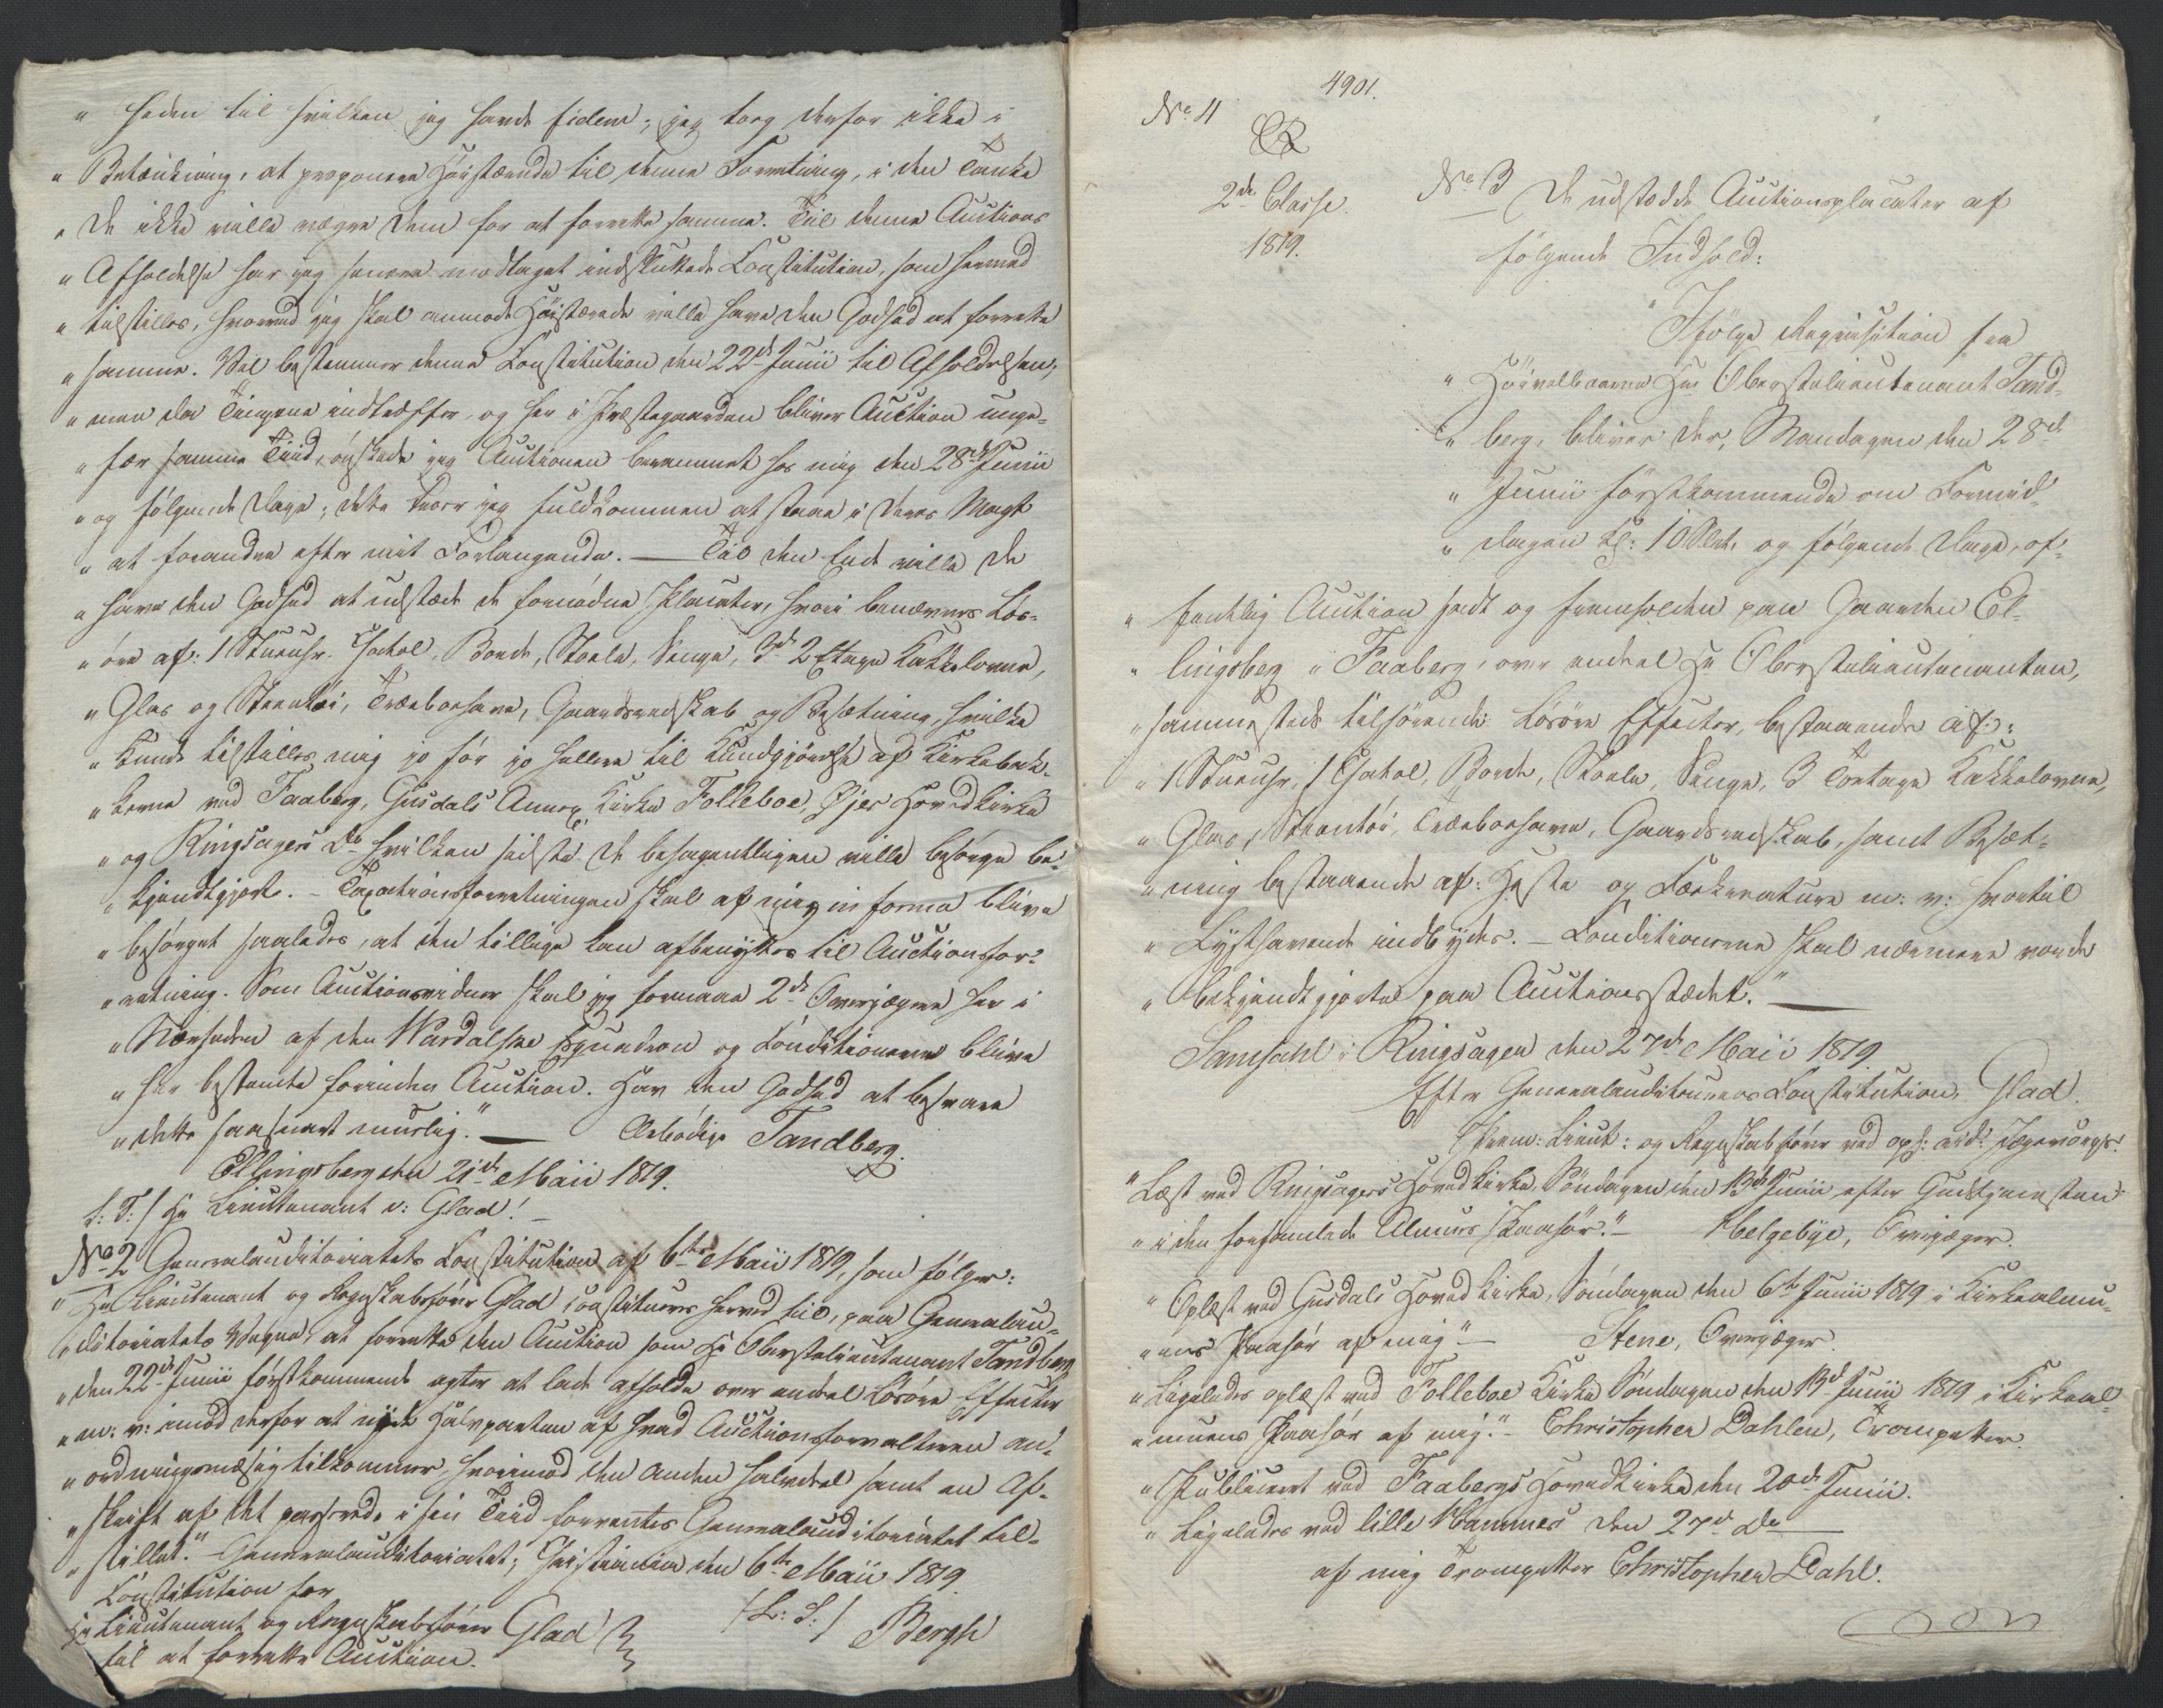 " heden til hvilken jeg havde fidem; jeg tog derfor ikke i
" Betænkning, at proponere Høistærende til denne Forretning, i den Tanke
" De ikke ville vægre Dem for at forrette samme. Til denne Auctions
" Afholdelse har jeg senere modtaget indsluttede Constitution, som hermed
" tilstilles, hvorved jeg skal anmode Høistærede ville have den Godhed at forrette
" samme. Vel bestemmer denne Constitution den 22de Junii til Afholdelsen,
" men da Tingene indtræffer, og her i Præstegaarden bliver Auction unge-
" fær samme Tiid, ønskede jeg Auctionen berammet hos mig den 28de Junii
" og følgende Dage; dette troer jeg fuldkommen at staae i Deres Magt
" at forandre efter mit Forlangende. — Til den Ende ville De
" have den Godhed at udstæde de fornødne Placater, hvori benævnes Løs-
" øre af: 1 Stueuhr, Chatol, Borde, Stoele, Senge, 3de 2 Etages Kakkelovne,
" Glas og Steentøi, Trævarer, Gaardsredskab og Besætning, hvilke
" kunde tilstilles mig jo før jo hellere til Kundgjørelse af Kirkebak-
" kerne ved Faaberg, Gusdals Annex Kirke Folleboe, Øjer Hovedkirke
" og Ringsagers Do hvilken sidste De behageligen ville besørge be-
" kjendtgjort. – Taxationsforretningen skal af mig in forma blive
" besørget saaledes, at den tillige kan afbenyttes til Auctionsfor-
" retning. Som Auctionsvidner skal jeg formaae 2de Overjægere her i
" Nærheden af den Wardalske Esquadron og Conditionerne blive
" her bestemte forinden Auction. Hav den Godhed at besvare
" dette saasnart muelig." — Ærbødigst Tandberg.
Ellingsberg den 21de Maii 1819.
S: T: / Hr Lieutenant v: Glad! –
No 2 Generalauditoriatets Constitution af 6te Maii 1819, som følger:
" Hr Lieutenant og Regnskabsfører Glad constitueres herved til, paa Generalau-
" ditoriatets Vegne, at forrette den Auction som Hr Oberstelieutenant Tandberg
" den 22de Junii førstkommende agter at lade afholde over endeel Løsøre Effecter
" m: v: imod derfor at nyde Halvparten af hvad Auctionsforvalteren an-
" ordningsmæsig tilkommer, hvorimod den anden halvdeel samt en Af-
" skrift af det passerede i sin Tiid forventes Generalauditoriatet til-
" stillet." – Generalauditoriatet, Christiania den 6te Maii 1819.
Constitution for
Hr Lieutenant og Regnskabsfører Glad /L: S:/ Bergh
til at forrette Auction.
4901.
No 4
2de Classe.
1819.
No 3 De udstædte Auctionsplacater af
følgende Indhold:
" Ifølge Requisition fra
" Høivelbaarne Hr Oberstelieutenant Tand-
" berg, bliver der, Mandagen den 28de
" Junii førstkommende om Formid-
" dagen Kl: 10 Slet, og følgende Dage, of-
" fentlig Auction sadt og fremholden paa Gaarden El-
" lingsberg i Faaberg, over endeel Hr Oberstelieutenanten,
" sammesteds tilhørende Løsøre Effecter, bestaaende af:
" 1 Stueuhr, 1 Chatol, Borde, Stoele, Senge, 3 Toetages Kakkelovne,
" Glas, Steentøi, Trævarer, Gaardsredskab, samt Besæt-
" ning bestaaende af: Heste og Fækreature m: v: hvortil
" Lysthavende indbydes. – Conditionerne skal nærmere vorde
" bekjendtgjorte paa Auctionsstædet." —
Samsahl i Ringsager den 27de Maii 1819.
Efter Generalauditeurens Constitution, Glad.
Prem: Lieut: og Regnskabsfører ved opl: rid: Jægercorps.
" Læst ved Ringsagers Hovedkirke, Søndagen den 13de Junii efter Gudstjenesten
" i den forsamlede Almues Paahør." – Helgebye, Overjæger.
" Oplæst ved Gusdals Hovedkirke, Søndagen den 6te Junii 1819 i Kirkealmu-
" ens Paahør af mig" – Stene, Overjæger.
" Ligeledes oplæst ved Folleboe Kirke Søndagen den 13de Junii 1819 i Kirkeal-
" muens Paahør af mig." – Christopher Dahlen, Trompetter.
" Publiceret ved Faabergs Hovedkirke den 20de Junii.
" Ligeledes ved lille Hammer den 27de Do
af mig Trompetter Christopher Dahl.